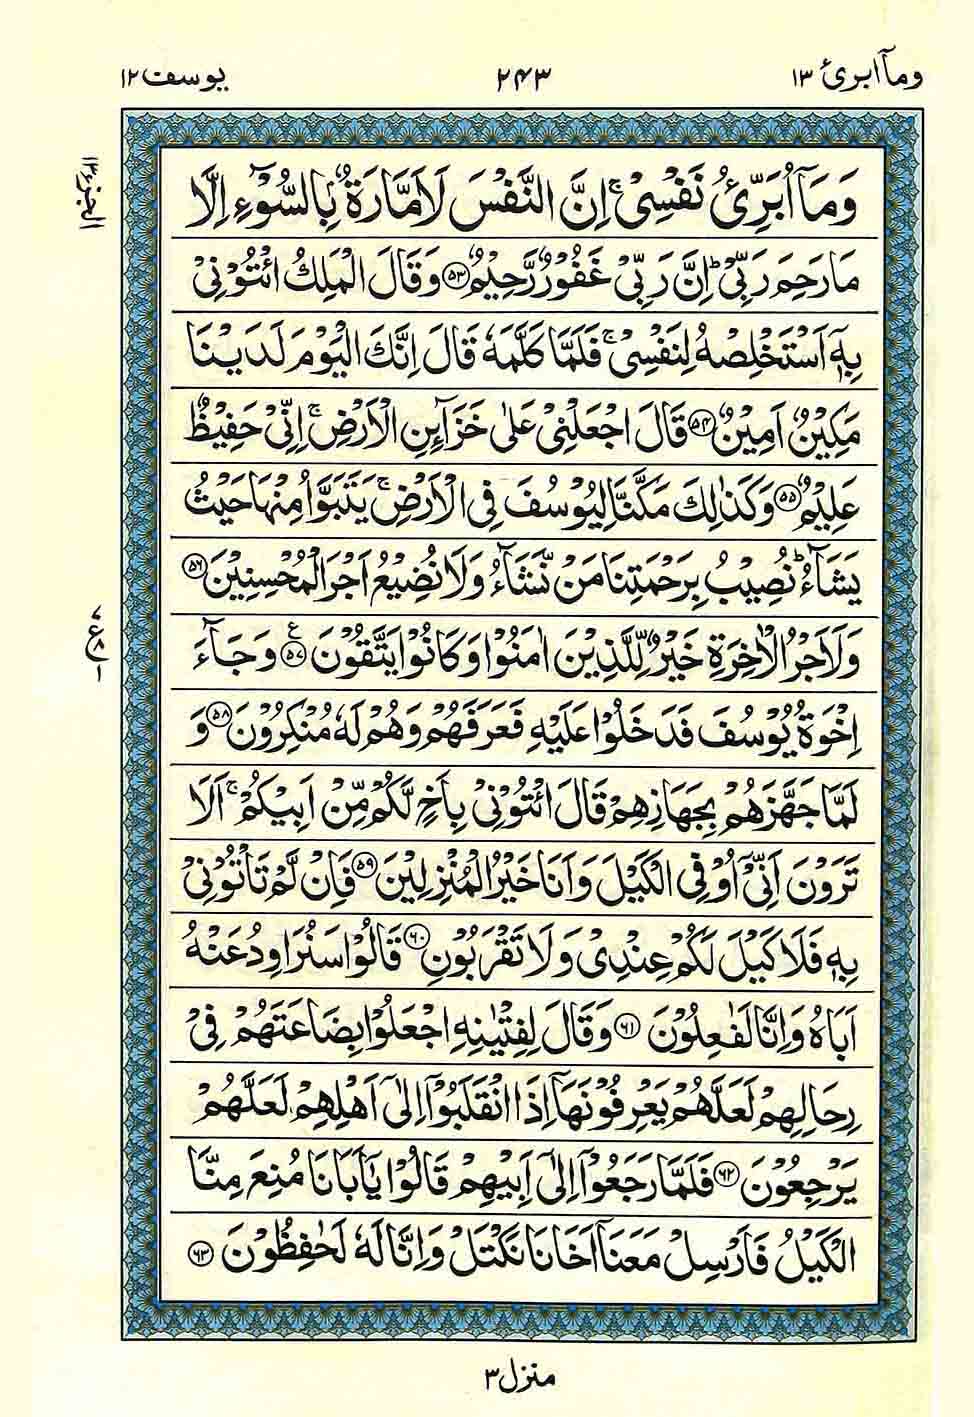 وماۤ ابرئ ۱۳
۲۴۳
یوسف ۱۲
الجزء ۱۳
وَمَاۤ اُبَرِّئُ نَفْسِیْ ۚ اِنَّ النَّفْسَ لَاَمَّارَةٌۢ بِالسُّوْٓءِ اِلَّا
مَا رَحِمَ رَبِّیْ ؕ اِنَّ رَبِّیْ غَفُوْرٌ رَّحِیْمٌ ﴿۵۳﴾ وَقَالَ الْمَلِكُ ائْتُوْنِیْ
بِهٖۤ اَسْتَخْلِصْهُ لِنَفْسِیْ ۚ فَلَمَّا كَلَّمَهٗ قَالَ اِنَّكَ الْیَوْمَ لَدَیْنَا
مَكِیْنٌ اَمِیْنٌ ﴿۵۴﴾ قَالَ اجْعَلْنِیْ عَلٰی خَزَآىِٕنِ الْاَرْضِ ۚ اِنِّیْ حَفِیْظٌ
عَلِیْمٌ ﴿۵۵﴾ وَكَذٰلِكَ مَكَّنَّا لِیُوْسُفَ فِی الْاَرْضِ ۚ یَتَبَوَّاُ مِنْهَا حَیْثُ
یَشَآءُ ؕ نُصِیْبُ بِرَحْمَتِنَا مَنْ نَّشَآءُ وَلَا نُضِیْعُ اَجْرَ الْمُحْسِنِیْنَ ﴿۵۶﴾
وَلَاَجْرُ الْاٰخِرَةِ خَیْرٌ لِّلَّذِیْنَ اٰمَنُوْا وَكَانُوْا یَتَّقُوْنَ ﴿۵۷﴾ ع وَجَآءَ
اِخْوَةُ یُوْسُفَ فَدَخَلُوْا عَلَیْهِ فَعَرَفَهُمْ وَهُمْ لَهٗ مُنْكِرُوْنَ ﴿۵۸﴾ وَ
لَمَّا جَهَّزَهُمْ بِجَهَازِهِمْ قَالَ ائْتُوْنِیْ بِاَخٍ لَّكُمْ مِّنْ اَبِیْكُمْ ۚ اَلَا
تَرَوْنَ اَنِّیْۤ اُوْفِی الْكَیْلَ وَاَنَا خَیْرُ الْمُنْزِلِیْنَ ﴿۵۹﴾ فَاِنْ لَّمْ تَاْتُوْنِیْ
بِهٖ فَلَا كَیْلَ لَكُمْ عِنْدِیْ وَلَا تَقْرَبُوْنِ ﴿۶۰﴾ قَالُوْا سَنُرَاوِدُ عَنْهُ
اَبَاهُ وَاِنَّا لَفٰعِلُوْنَ ﴿۶۱﴾ وَقَالَ لِفِتْیٰنِهِ اجْعَلُوْا بِضَاعَتَهُمْ فِیْ
رِحَالِهِمْ لَعَلَّهُمْ یَعْرِفُوْنَهَاۤ اِذَا انْقَلَبُوْۤا اِلٰۤی اَهْلِهِمْ لَعَلَّهُمْ
یَرْجِعُوْنَ ﴿۶۲﴾ فَلَمَّا رَجَعُوْۤا اِلٰۤی اَبِیْهِمْ قَالُوْا یٰۤاَبَانَا مُنِعَ مِنَّا
الْكَیْلُ فَاَرْسِلْ مَعَنَاۤ اَخَانَا نَكْتَلْ وَاِنَّا لَهٗ لَحٰفِظُوْنَ ﴿۶۳﴾
ع ۷ ۸ ۱
منزل ۳